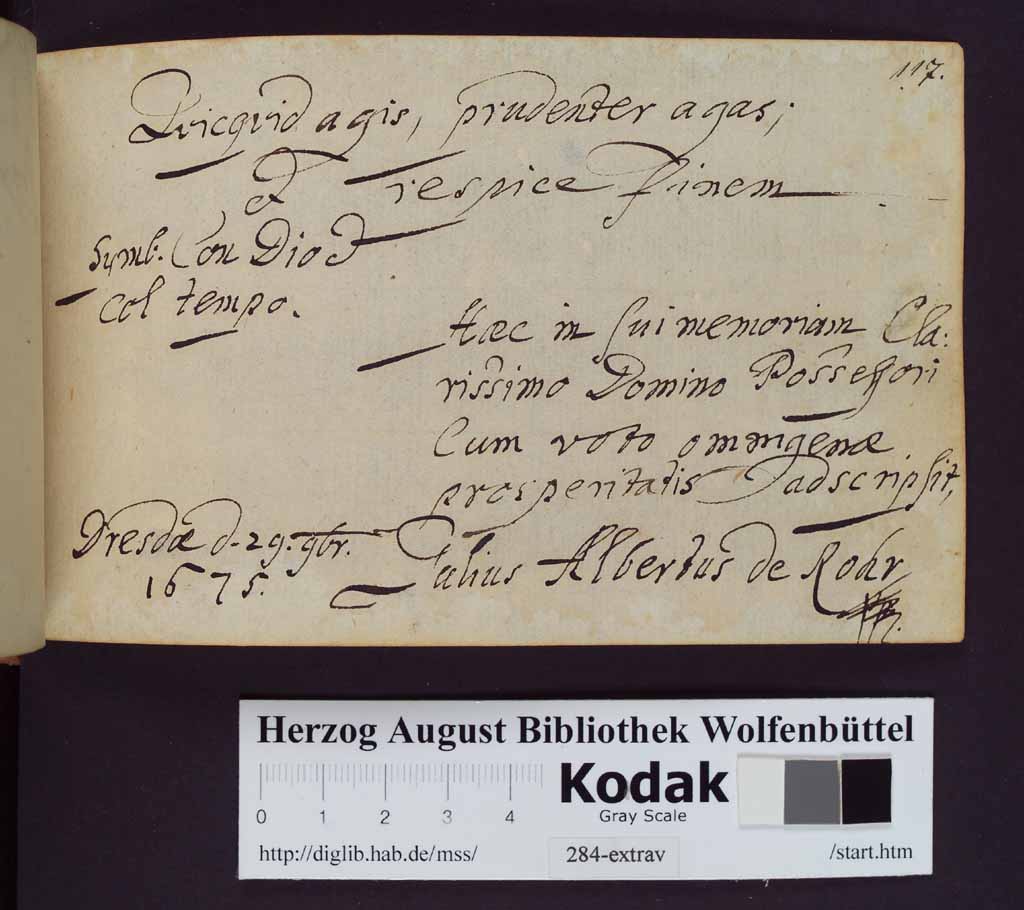 117.
Quicquid agis, prudenter agas;
et respice finem
Symb: Con Dio et
col tempo.
Haec in sui memoriam Cla:
rissimo Domino Possessori
Cum voto omnigenae
prosperitatis adscripsit,
Dresdae d. 29. 9br.
1675.
Julius Albertus de Rohr
Herzog August Bibliothek Wolfenbüttel
0 1 2 3 4
Kodak
Gray Scale
http://diglib.hab.de/mss/
284-extrav
/start.htm